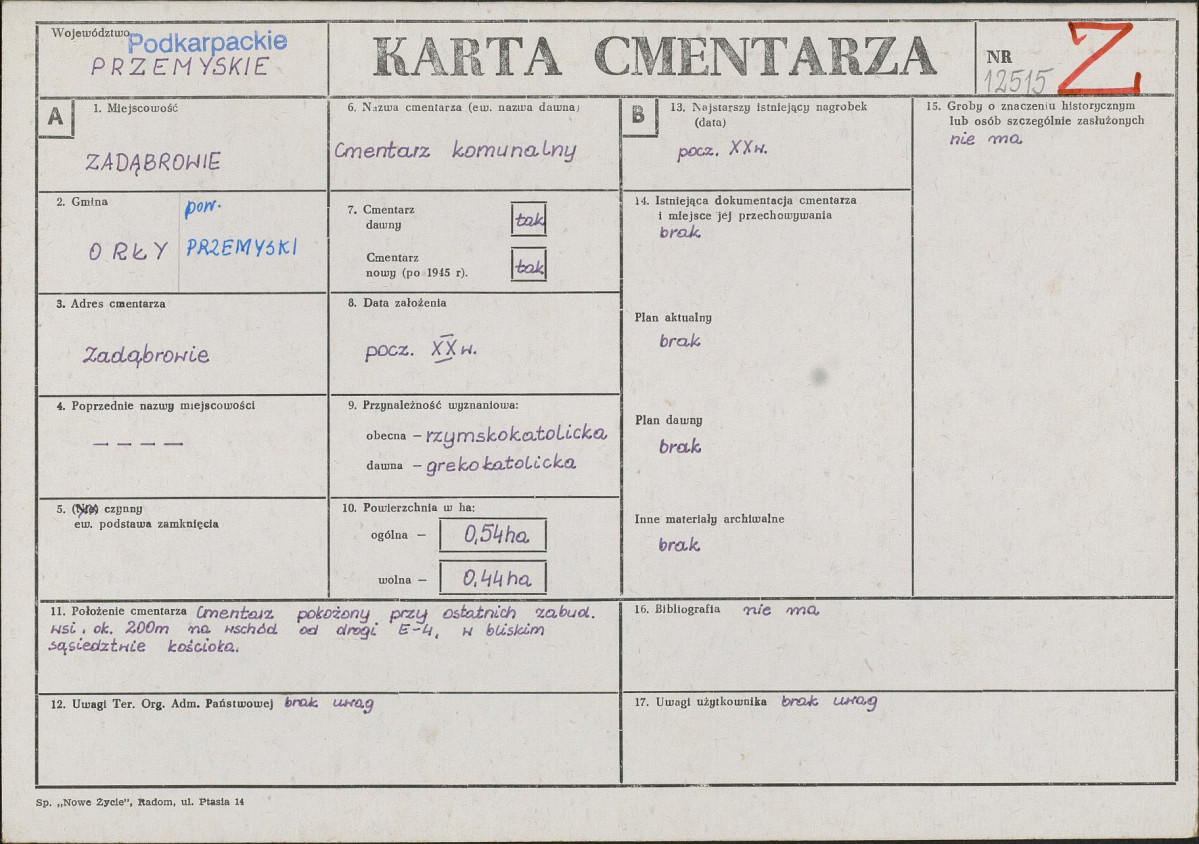 Województwo Podkarpackie
PRZEMYSKIE
KARTA CMENTARZA
NR
12515
Z
A
1. Miejscowość
ZADĄBROWIE
2. Gmina
ORŁY
pow.
PRZEMYSKI
3. Adres cmentarza
Zadąbrowie
4. Poprzednie nazwy miejscowości
— — — —
5. (Nie) czynny
ew. podstawa zamknięcia
6. Nazwa cmentarza (ew. nazwa dawna)
Cmentarz komunalny
7. Cmentarz
dawny
tak
Cmentarz
nowy (po 1945 r).
tak
8. Data założenia
pocz. XX w.
9. Przynależność wyznaniowa:
obecna – rzymskokatolicka
dawna – grekokatolicka
10. Powierzchnia w ha:
ogólna – 0,54ha
wolna – 0,44ha
11. Położenie cmentarza Cmentarz położony przy ostatnich zabud.
wsi, ok. 200m na wschód od drogi E-4, w bliskim
sąsiedztwie kościoła.
12. Uwagi Ter. Org. Adm. Państwowej brak uwag
B
13. Najstarszy istniejący nagrobek
(data)
pocz. XXw.
14. Istniejąca dokumentacja cmentarza
i miejsce jej przechowywania
brak
Plan aktualny
brak
Plan dawny
brak
Inne materiały archiwalne
brak
15. Groby o znaczeniu historycznym
lub osób szczególnie zasłużonych
nie ma
16. Bibliografia nie ma
17. Uwagi użytkownika brak uwag
Sp. „Nowe Życie", Radom, ul. Ptasia 14